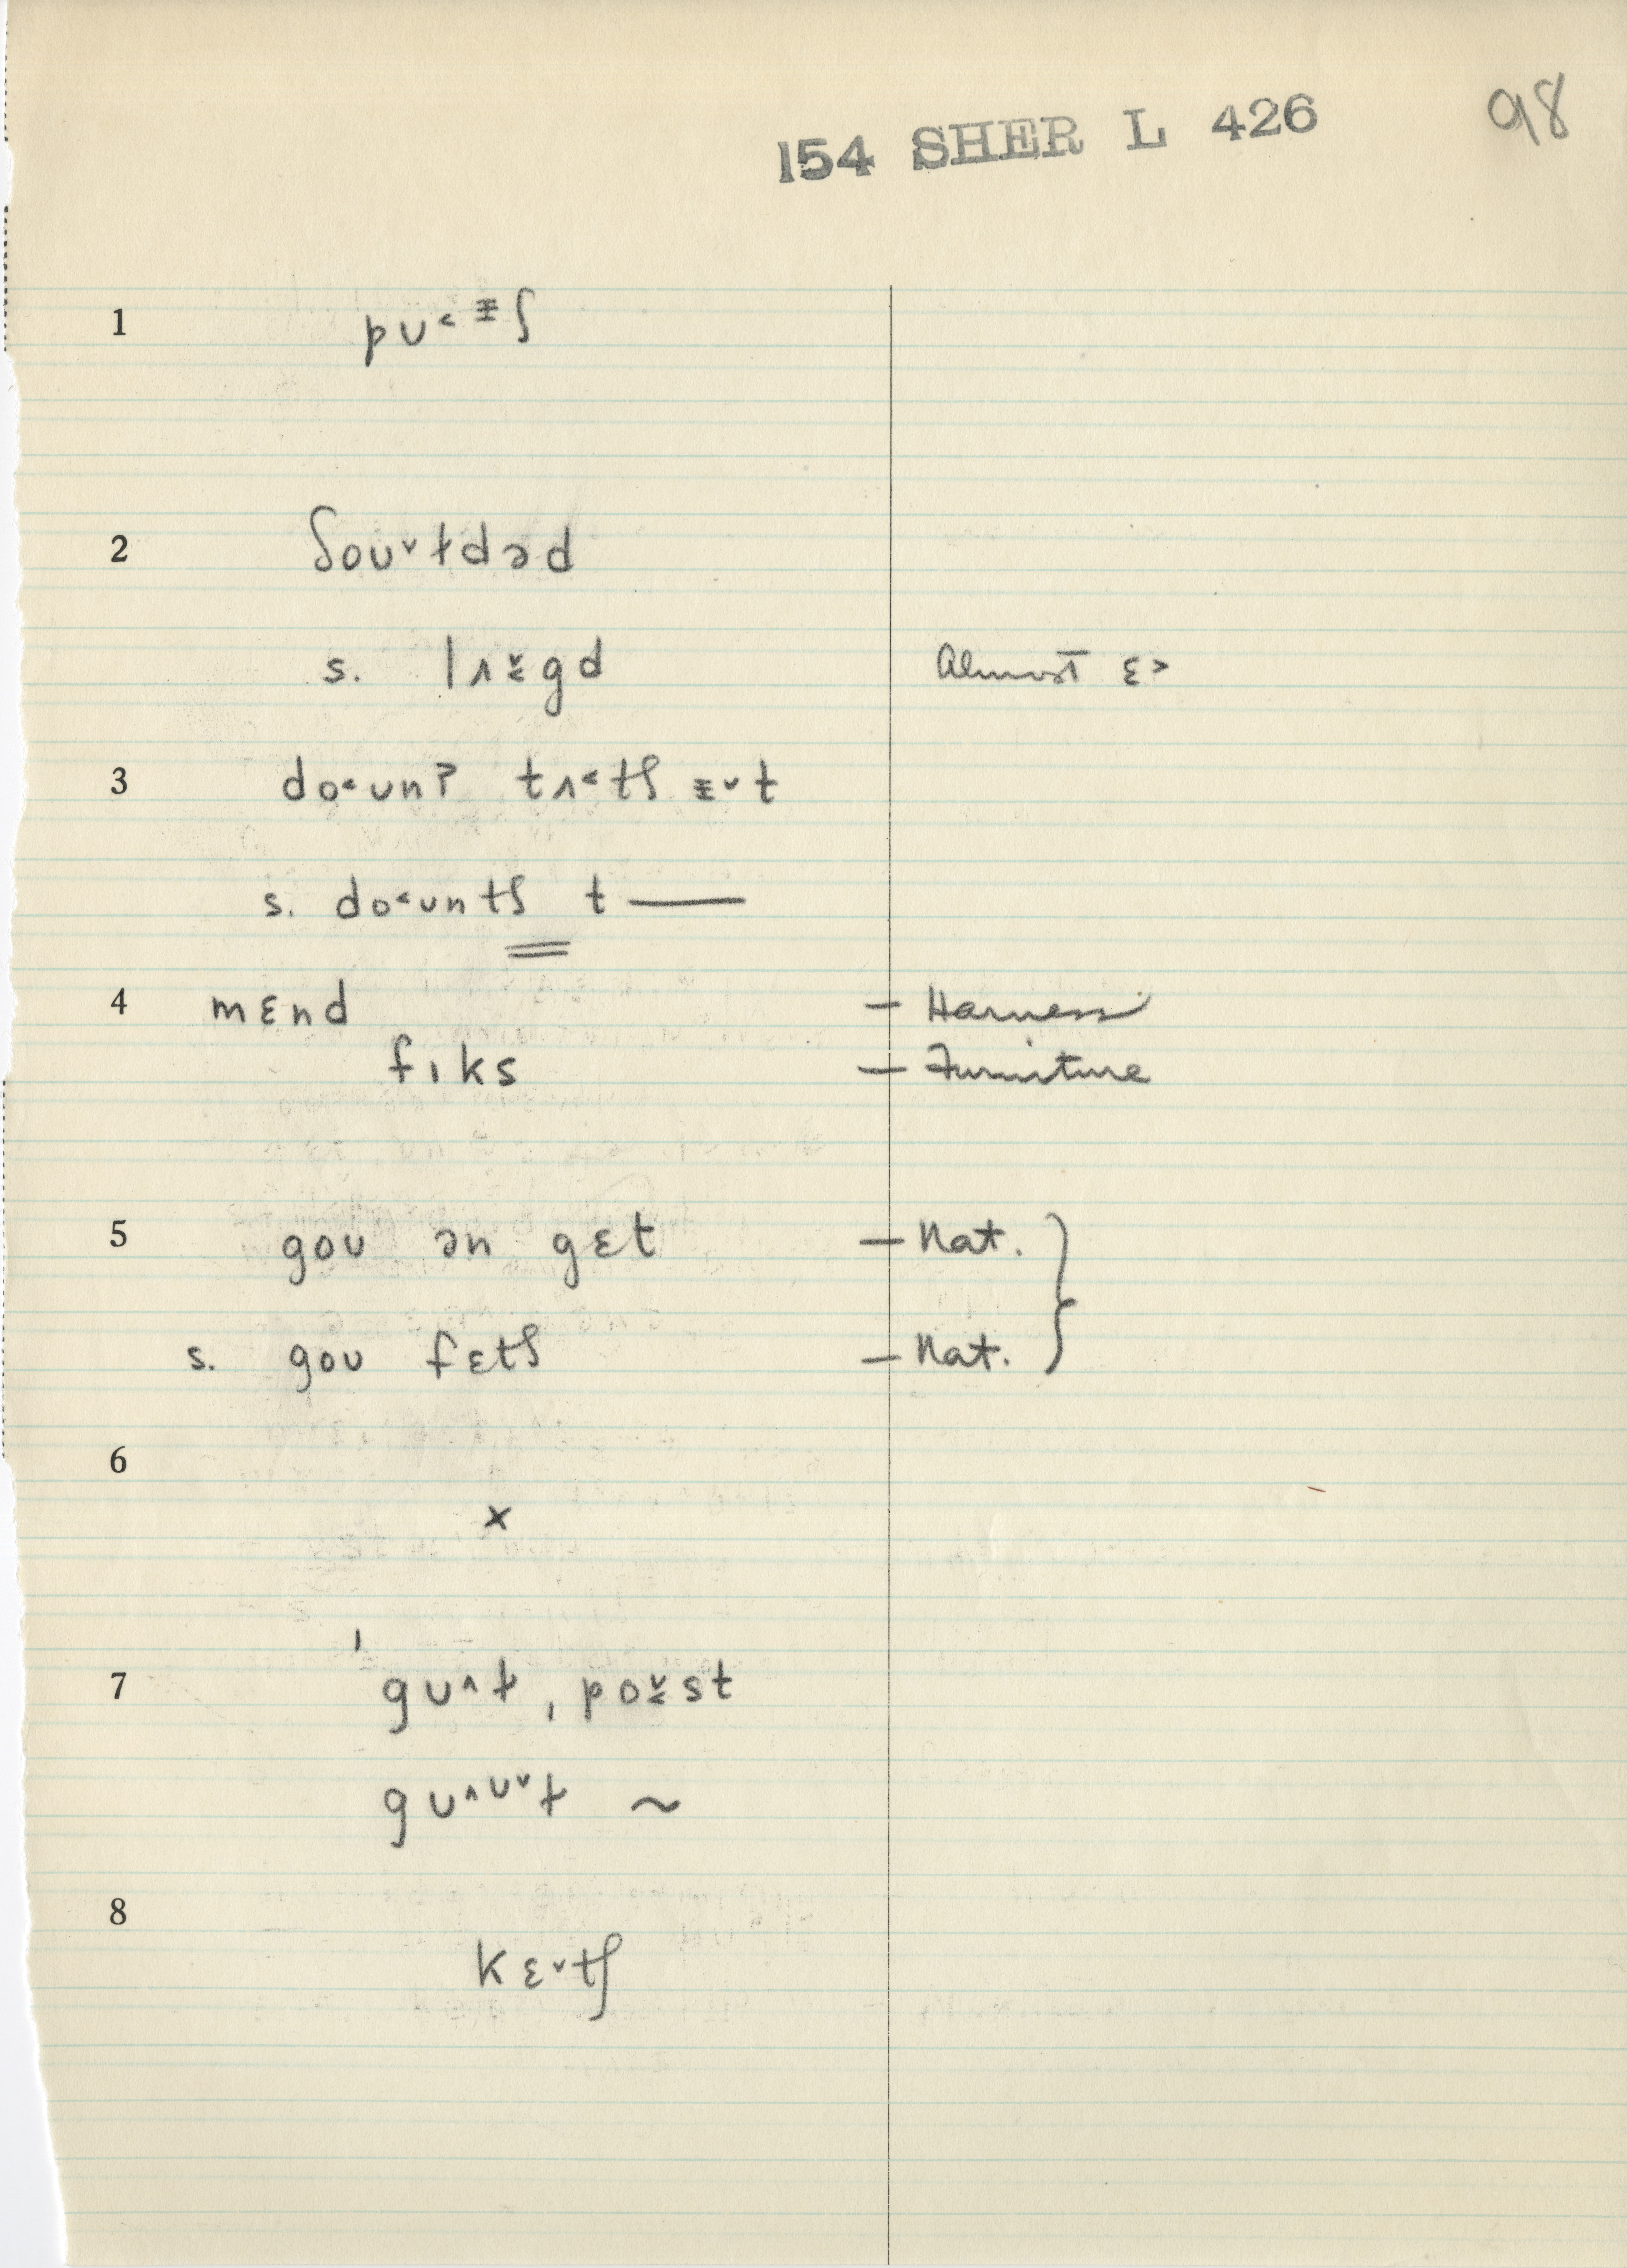 154 SHER L 426 98
1 pʊ˂ ᵻʃ
2 ʃoʊ˅ɫdəd
s. lʌɛ̬gd Almost ɛ˃
3 do˂ʊnʔ tʌ˂tʃ ᵻ˅t
s. do˂ʊntʃ t —
4 mɛnd — Harness
fɪks — Furniture
5 goʊ ən gɛt — Nat. }
s. goʊ fɛtʃ — Nat.
6
x
7 ˈgʊ˄ɫ ˌpoɪ̬st
gʊ˄ʊ˅ɫ ~
8
kɛ˅tʃ